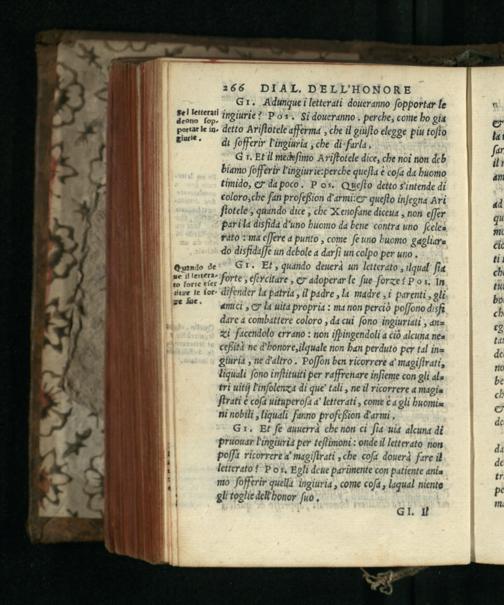 266 DIAL. DELL'HONORE
GI. Adunque i letterati doueranno sopportar le
ingiurie? POS. Si doueranno. perche, come ho gia
detto Aristotele afferma, che il giusto elegge piu tosto
di sofferir l'ingiuria, che di farla.
Se i letterati
deono sop-
portar le in-
giurie.
GI. Et il medesimo Aristotele dice, che noi non deb
biamo sofferir l'ingiurie: perche questa è cosa da huomo
timido, & da poco. POS. Questo detto s'intende di
coloro, che fan profeßion d'armi: & questo insegna Ari
stotele, quando dice, che Xenofane diceua, non esser
pari la disfida d'uno huomo da bene contra uno scele-
rato: ma essere a punto, come se uno huomo gagliar-
do disfidasse un debole a darsi un colpo per uno.
GI. Et, quando deuerà un letterato, ilqual sia
forte, esercitare, & adoperar le sue forze? POS. In
difender la patria, il padre, la madre, i parenti, gli
amici, & la uita propria: ma non perciò possono disfi
dare a combattere coloro, da cui sono ingiuriati, an-
zi facendolo errano: non ispingendoli a ciò alcuna ne-
ceßità ne d'honore, ilquale non han perduto per tal in-
giuria, ne d'altro. Posson ben ricorrere a' magistrati,
liquali sono instituiti per raffrenare insieme con gli al-
tri uitij l'insolenza di que' tali, ne il ricorrere a magi-
strati è cosa uituperosa a' letterati, come è a gli huomi-
ni nobili, liquali fanno profeßion d'armi.
Quando de
ue il lettera-
to forte eser
citar le for-
ze sue.
GI. Et se auuerrà che non ci sia uia alcuna di
pruouar l'ingiuria per testimoni: onde il letterato non
possa ricorrere a' magistrati, che cosa douerà fare il
letterato? POS. Egli deue parimente con patiente ani-
mo sofferir quella ingiuria, come cosa, laqual niente
gli toglie dell'honor suo.
GI. Il